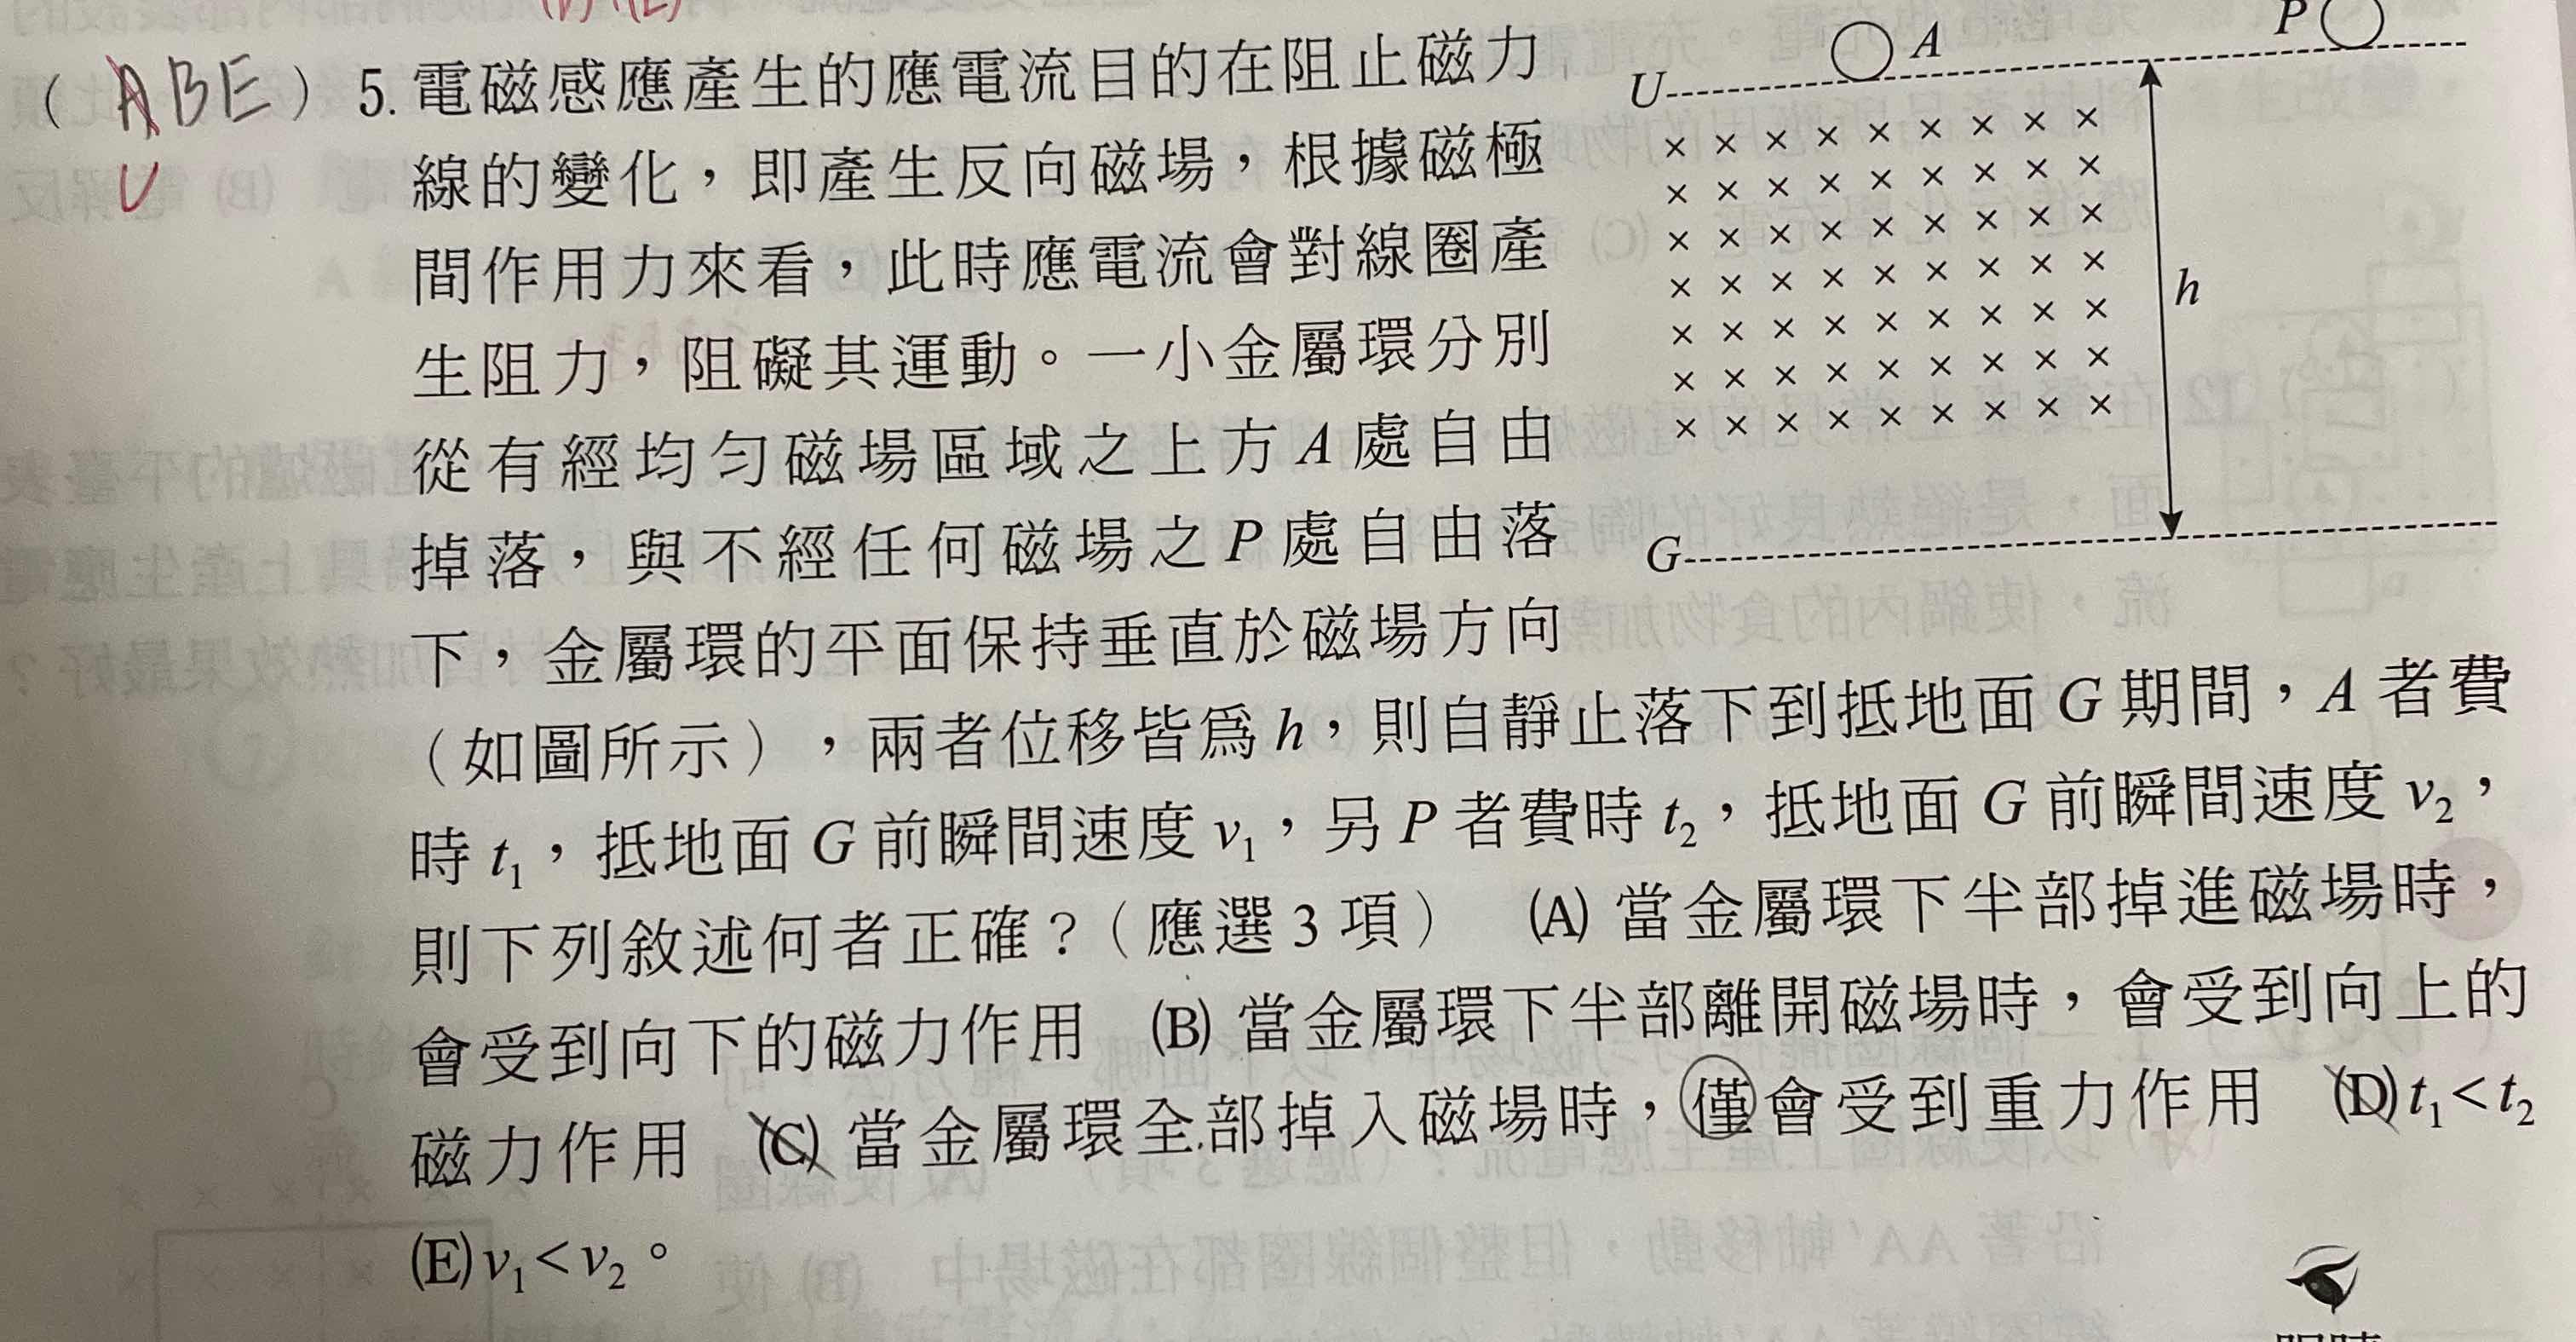 (D)(E)
(ABE) 5. 電磁感應產生的應電流目的在阻止磁力
C
線的變化，即產生反向磁場，根據磁極
間作用力來看，此時應電流會對線圈產
生阻力，阻礙其運動。一小金屬環分別
從有經均勻磁場區域之上方A處自由
掉落，與不經任何磁場之P處自由落
下，金屬環的平面保持垂直於磁場方向
（如圖所示），兩者位移皆為h，則自靜止落下到抵地面G期間，A者費
時t₁，抵地面G前瞬間速度v₁，另P者費時t₂，抵地面G前瞬間速度v₂，
則下列敘述何者正確？（應選3項） (A)當金屬環下半部掉進磁場時，
會受到向下的磁力作用 (B)當金屬環下半部離開磁場時，會受到向上的
磁力作用 (C)當金屬環全部掉入磁場時，僅會受到重力作用 (D)t₁<t₂
(E)v₁<v₂。
A
P
U
× × × × × × × × ×
× × × × × × × × ×
× × × × × × × × ×
× × × × × × × × ×
× × × × × × × × ×
× × × × × × × × ×
× × × × × × × × ×
h
G